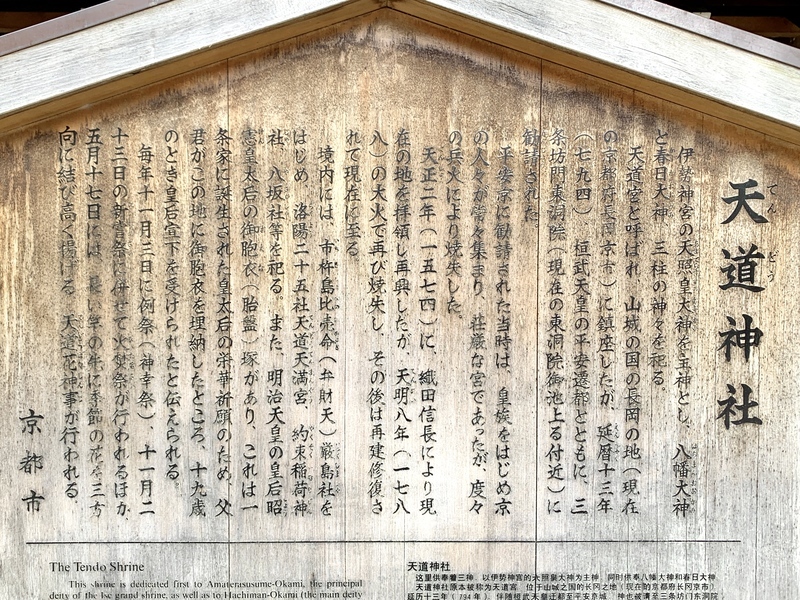 天道神社
てんどう
伊勢神宮の天照皇大神を主神とし、八幡大神
と春日大神、三柱の神々を祀る。
天道宮と呼ばれ、山城の国の長岡の地（現在
の京都府長岡京市）に鎮座したが、延暦十三年
（七九四）桓武天皇の平安遷都とともに、三
条坊門東洞院（現在の東洞院御池上る付近）に
勧請された。
平安京に勧請された当時は、皇族をはじめ京
の人々が常々集まり、荘厳な宮であったが、度々
の兵火により焼失した。
天正二年（一五七四）に、織田信長により現
在の地を拝領し再興したが、天明八年（一七八
八）の大火で再び焼失し、その後は再建修復さ
れて現在に至る。
境内には、市杵島比売命（弁財天）厳島社を
はじめ、洛陽二十五社天道天満宮、約束稲荷神
社、八坂社等を祀る。また、明治天皇の皇后昭
憲皇太后の御胞衣（胎盤）塚があり、これは一
条家に誕生された皇太后の栄華祈願のため、父
君がこの地に御胞衣を埋納したところ、十九歳
のとき皇后宣下を受けられたと伝えられる。
毎年十一月三日に例祭（神幸祭）十一月二
十三日の新嘗祭に併せて火焚祭が行われるほか、
五月十七日には、長い竿の先に季節の花を三方
向に結び高く揚げる、天道花神事が行われる。
京都市
The Tendo Shrine
This shrine is dedicated first to Amaterasusume-Okami, the principal
deity of the Ise grand shrine, as well as to Hachiman-Okami (the main deity
天道神社
这里供奉着三神，以伊势神宫的天照皇大神为主神，同时供奉八幡大神和春日大神。
天道神社原本被称为天道宫，位于山城之国的长冈之地（现在的京都府长冈京市）